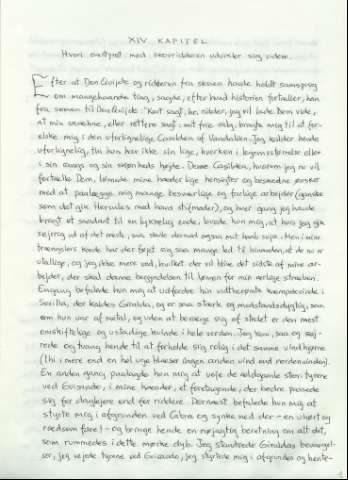 XIV. KAPITEL
Hvori eventyret med skovridderen udvikler sig videre.
Efter at Don Quijote og ridderen fra skoven havde holdt samsprog
om mangehaande ting, sagde, efter hvad historien fortæller, han
fra skoven til Don Quijote: "Kort sagt, hr. ridder, jeg vil lade Dem vide,
at min skæbne, eller rettere sagt: mit frie valg, bragte mig til at for-
elske mig i den uforlignelige Casildea af Vandalien. Jeg kalder hende
uforlignelig, thi hun har ikke sin lige, hverken i legemsstørrelse eller
i sin rangs og sin skønheds højde. Denne Casildea, hvorom jeg nu vil
fortælle Dem, lønnede mine hæderlige hensigter og beskedne ønsker
med at paalægge mig mange besværlige og farlige arbejder (ganske
som det gik Hercules med hans stifmoder), og hver gang jeg havde
bragt et saadant til en lykkelig ende, lovede hun mig, at hvis jeg gik
sejrrig ud af det næste, saa skulde dermed ogsaa mit haab ske. Men i mine
trængslers kæde har der føjet sig saa mange led til hinanden, at de nu er
utallige, og jeg ikke mere ved, hvilket der vil blive det sidste af mine ar-
bejder, der skal danne begyndelsen til lønnen for min ærlige stræben.
Engang befalede hun mig at udfordre hin vidtberømte kæmpekvinde i
Sevilla, der kaldes Giralda, og er saa stærk og modstandsdygtig, som
om hun var af metal, og uden at bevæge sig af stedet er den mest
omskiftelige og ustadige kvinde i hele verden. Jeg kom, saa og sej-
rede og tvang hende til at forholde sig rolig i det samme vindhjørne
(thi i mere end en hel uge blæser ingen anden vind end nordenvinden).
En anden gang paalagde hun mig at veje de ældgamle sten-tyrene
ved Guisando, i mine hænder, et foretagende, der bedre passede
sig for daglejere end for riddere. Dernæst befalede hun mig at
styrte mig i afgrunden ved Cabra og synke ned der – en uhørt og
rædsom fare! – og bringe hende en nøjagtig beretning om alt det,
som rummedes i dette mørke dyb. Jeg standsede Giraldas bevægel-
ser, jeg vejede tyrene ved Guisando, jeg styrtede mig i afgrunden og hente-